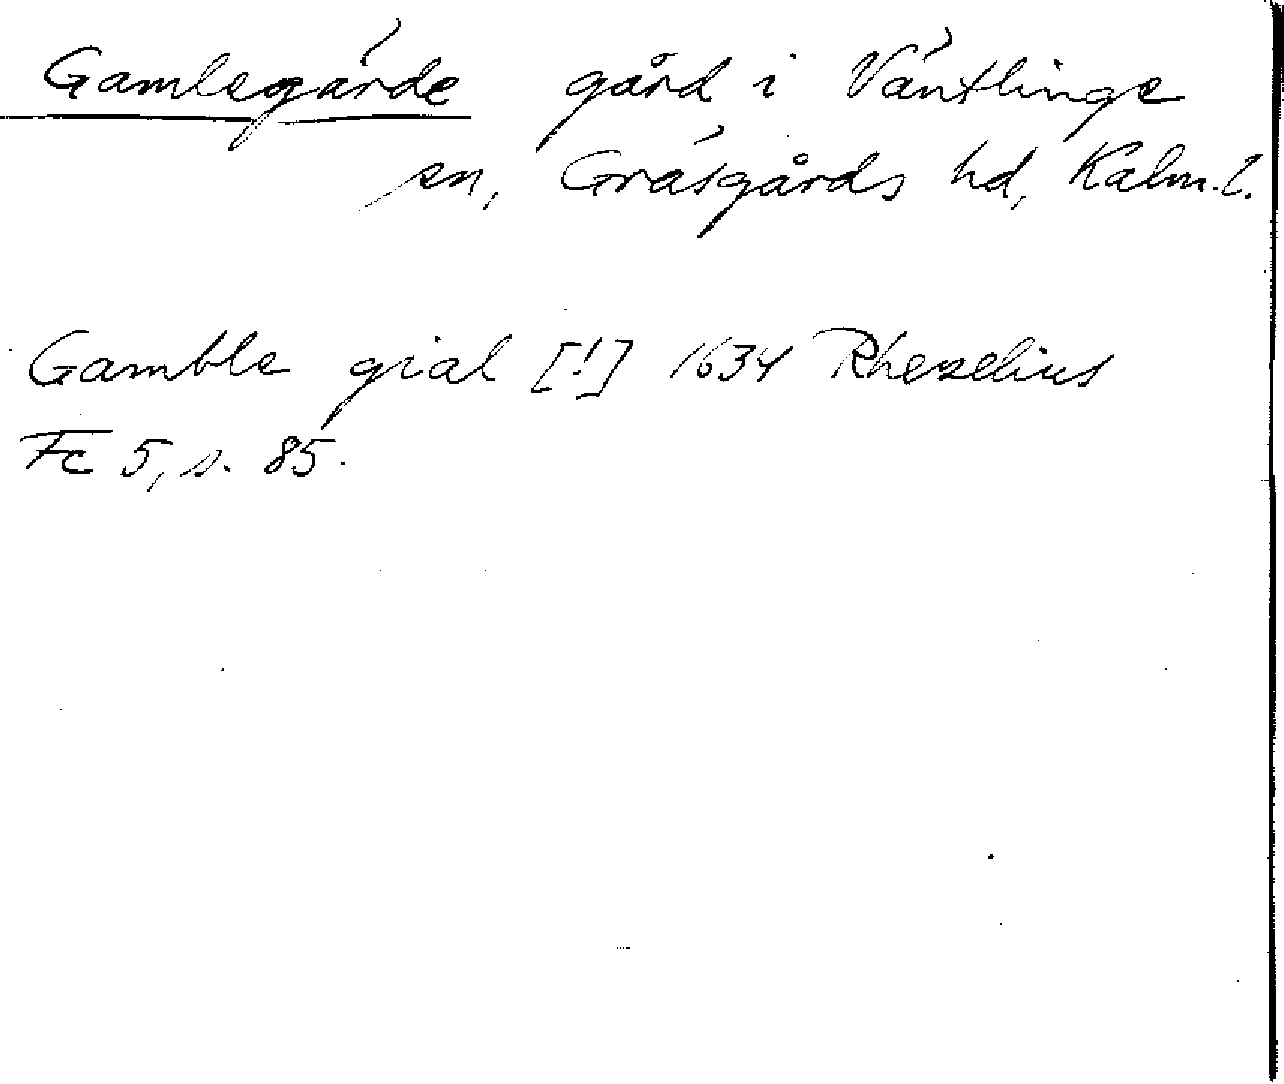 Gamlegärde gård i Väntlinge
sn, Gräsgårds hd, Kalm. l.
Gamble gial [!] 1634 Rhezelius
Fc 5, s. 85.